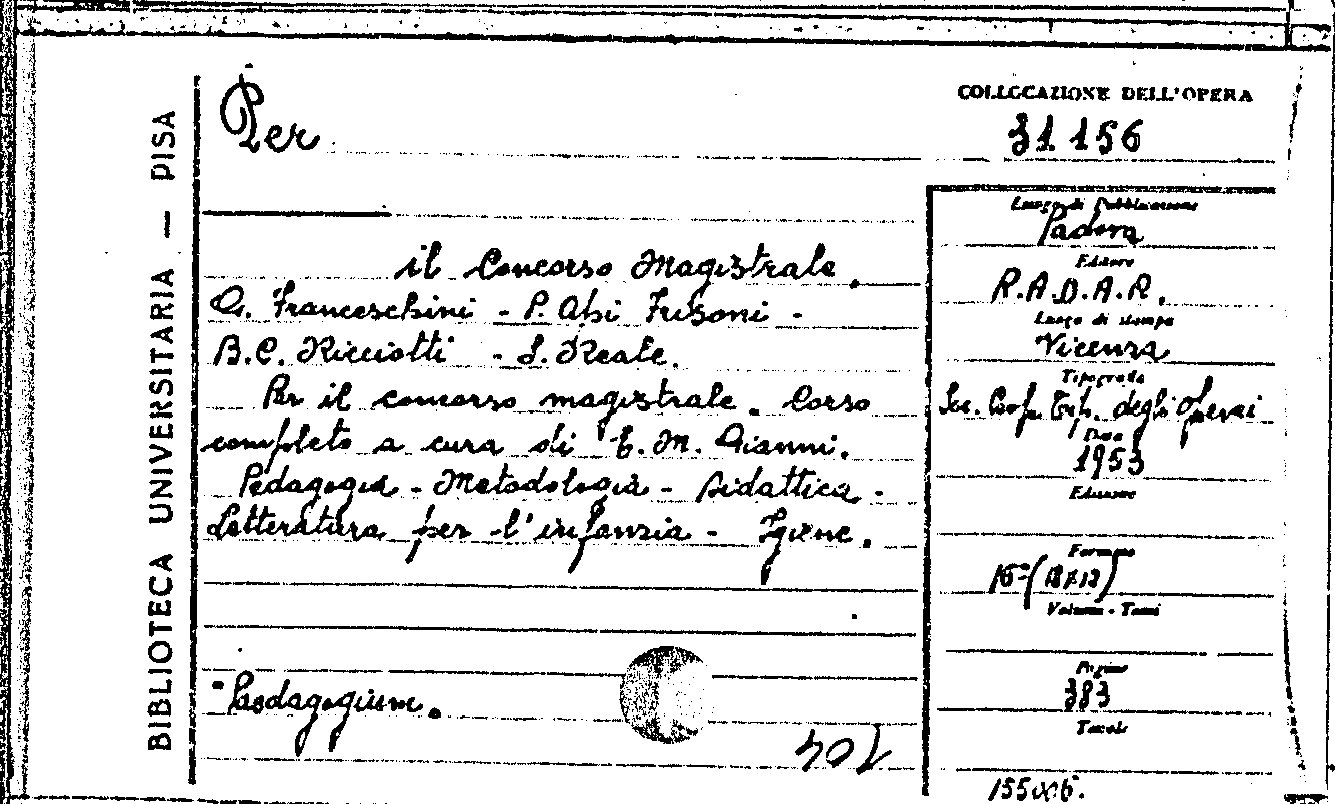 BIBLIOTECA UNIVERSITARIA — PISA
Per
il Concorso Magistrale.
G. Franceschini - P. Abi Frisoni -
B.C. Ricciotti - S. Reale.
Per il concorso magistrale. Corso
completo a cura di E. M. Gianni.
Pedagogia - Metodologia - Didattica -
Letteratura per l'infanzia - Igiene.
"Paedagogium.
COLLOCAZIONE DELL'OPERA
31 156
Luogo di Pubblicazione
Padova
Editore
R.A.D.A.R.
Luogo di stampa
Vicenza
Tipografo
Soc. Coop. Tip. degli Operai
Data
1953
Edizione
Formato
16° (18x12)
Volume - Tomi
Pagine
383
Tavole